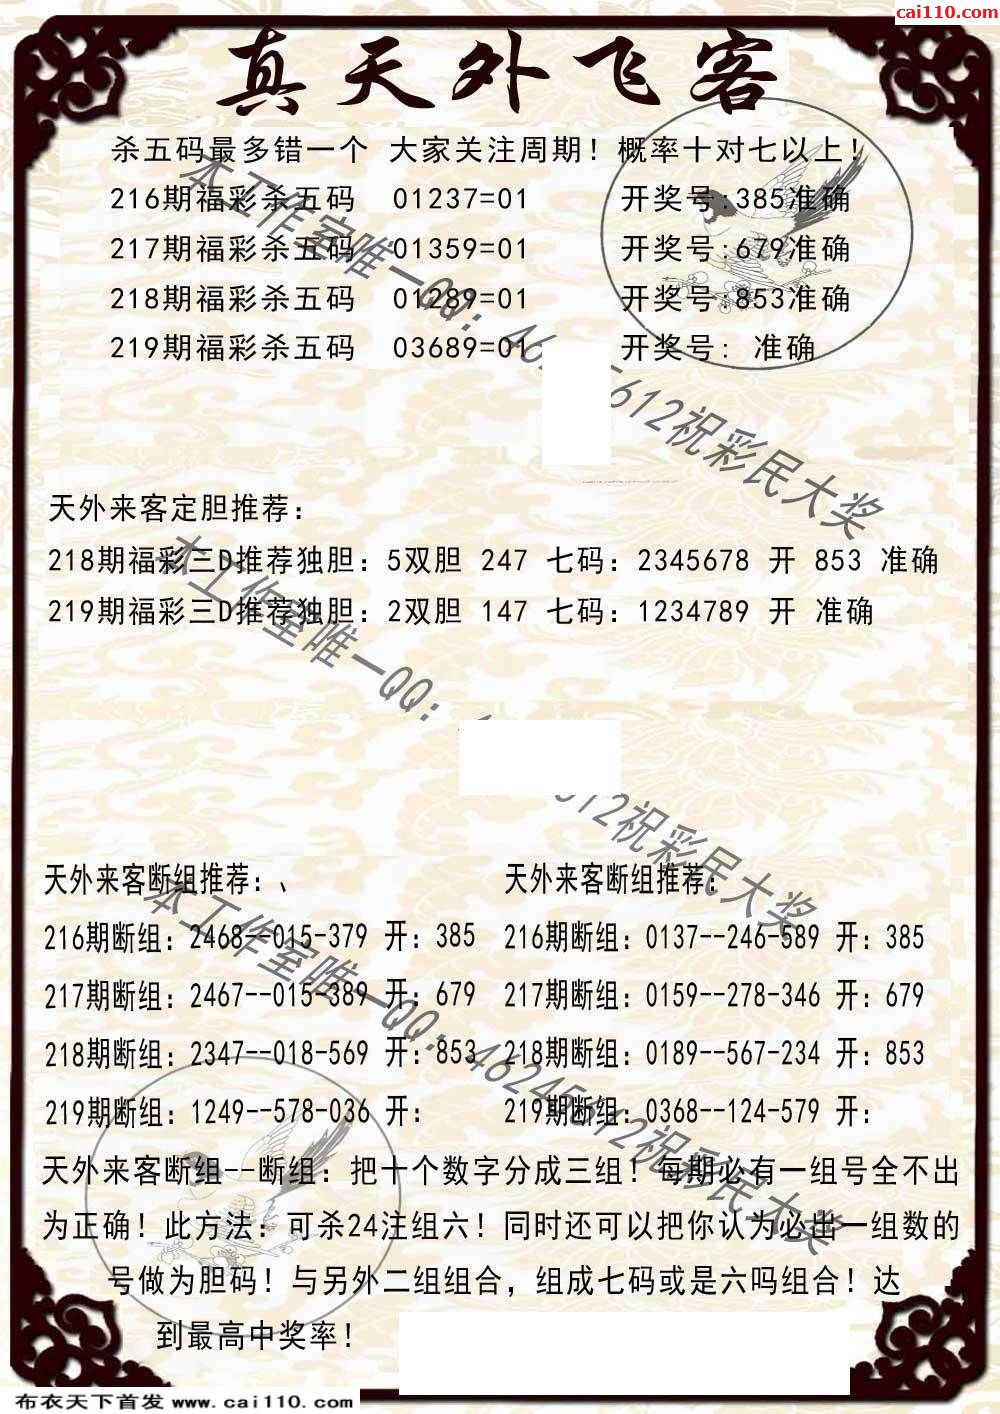 cai110.com
真天外飞客
杀五码最多错一个 大家关注周期！概率十对七以上！
216期福彩杀五码 01237=01 开奖号:385准确
217期福彩杀五码 01359=01 开奖号:679准确
218期福彩杀五码 01289=01 开奖号:853准确
219期福彩杀五码 03689=01 开奖号: 准确
天外来客定胆推荐：
218期福彩三D推荐独胆：5双胆 247 七码：2345678 开 853 准确
219期福彩三D推荐独胆：2双胆 147 七码：1234789 开 准确
天外来客断组推荐：、
216期断组：2468--015-379 开：385
217期断组：2467--015-389 开：679
218期断组：2347--018-569 开：853
219期断组：1249--578-036 开：
天外来客断组推荐：
216期断组：0137--246-589 开：385
217期断组：0159--278-346 开：679
218期断组：0189--567-234 开：853
219期断组：0368--124-579 开：
天外来客断组--断组：把十个数字分成三组！每期必有一组号全不出
为正确！此方法：可杀24注组六！同时还可以把你认为必出一组数的
号做为胆码！与另外二组组合，组成七码或是六吗组合！达
到最高中奖率！
本工作室唯一QQ：46 612祝彩民大奖
本工作室唯一QQ： 612祝彩民大奖
本工作室唯一QQ：46245612祝彩民大奖
布衣天下首发 www.cai110.com